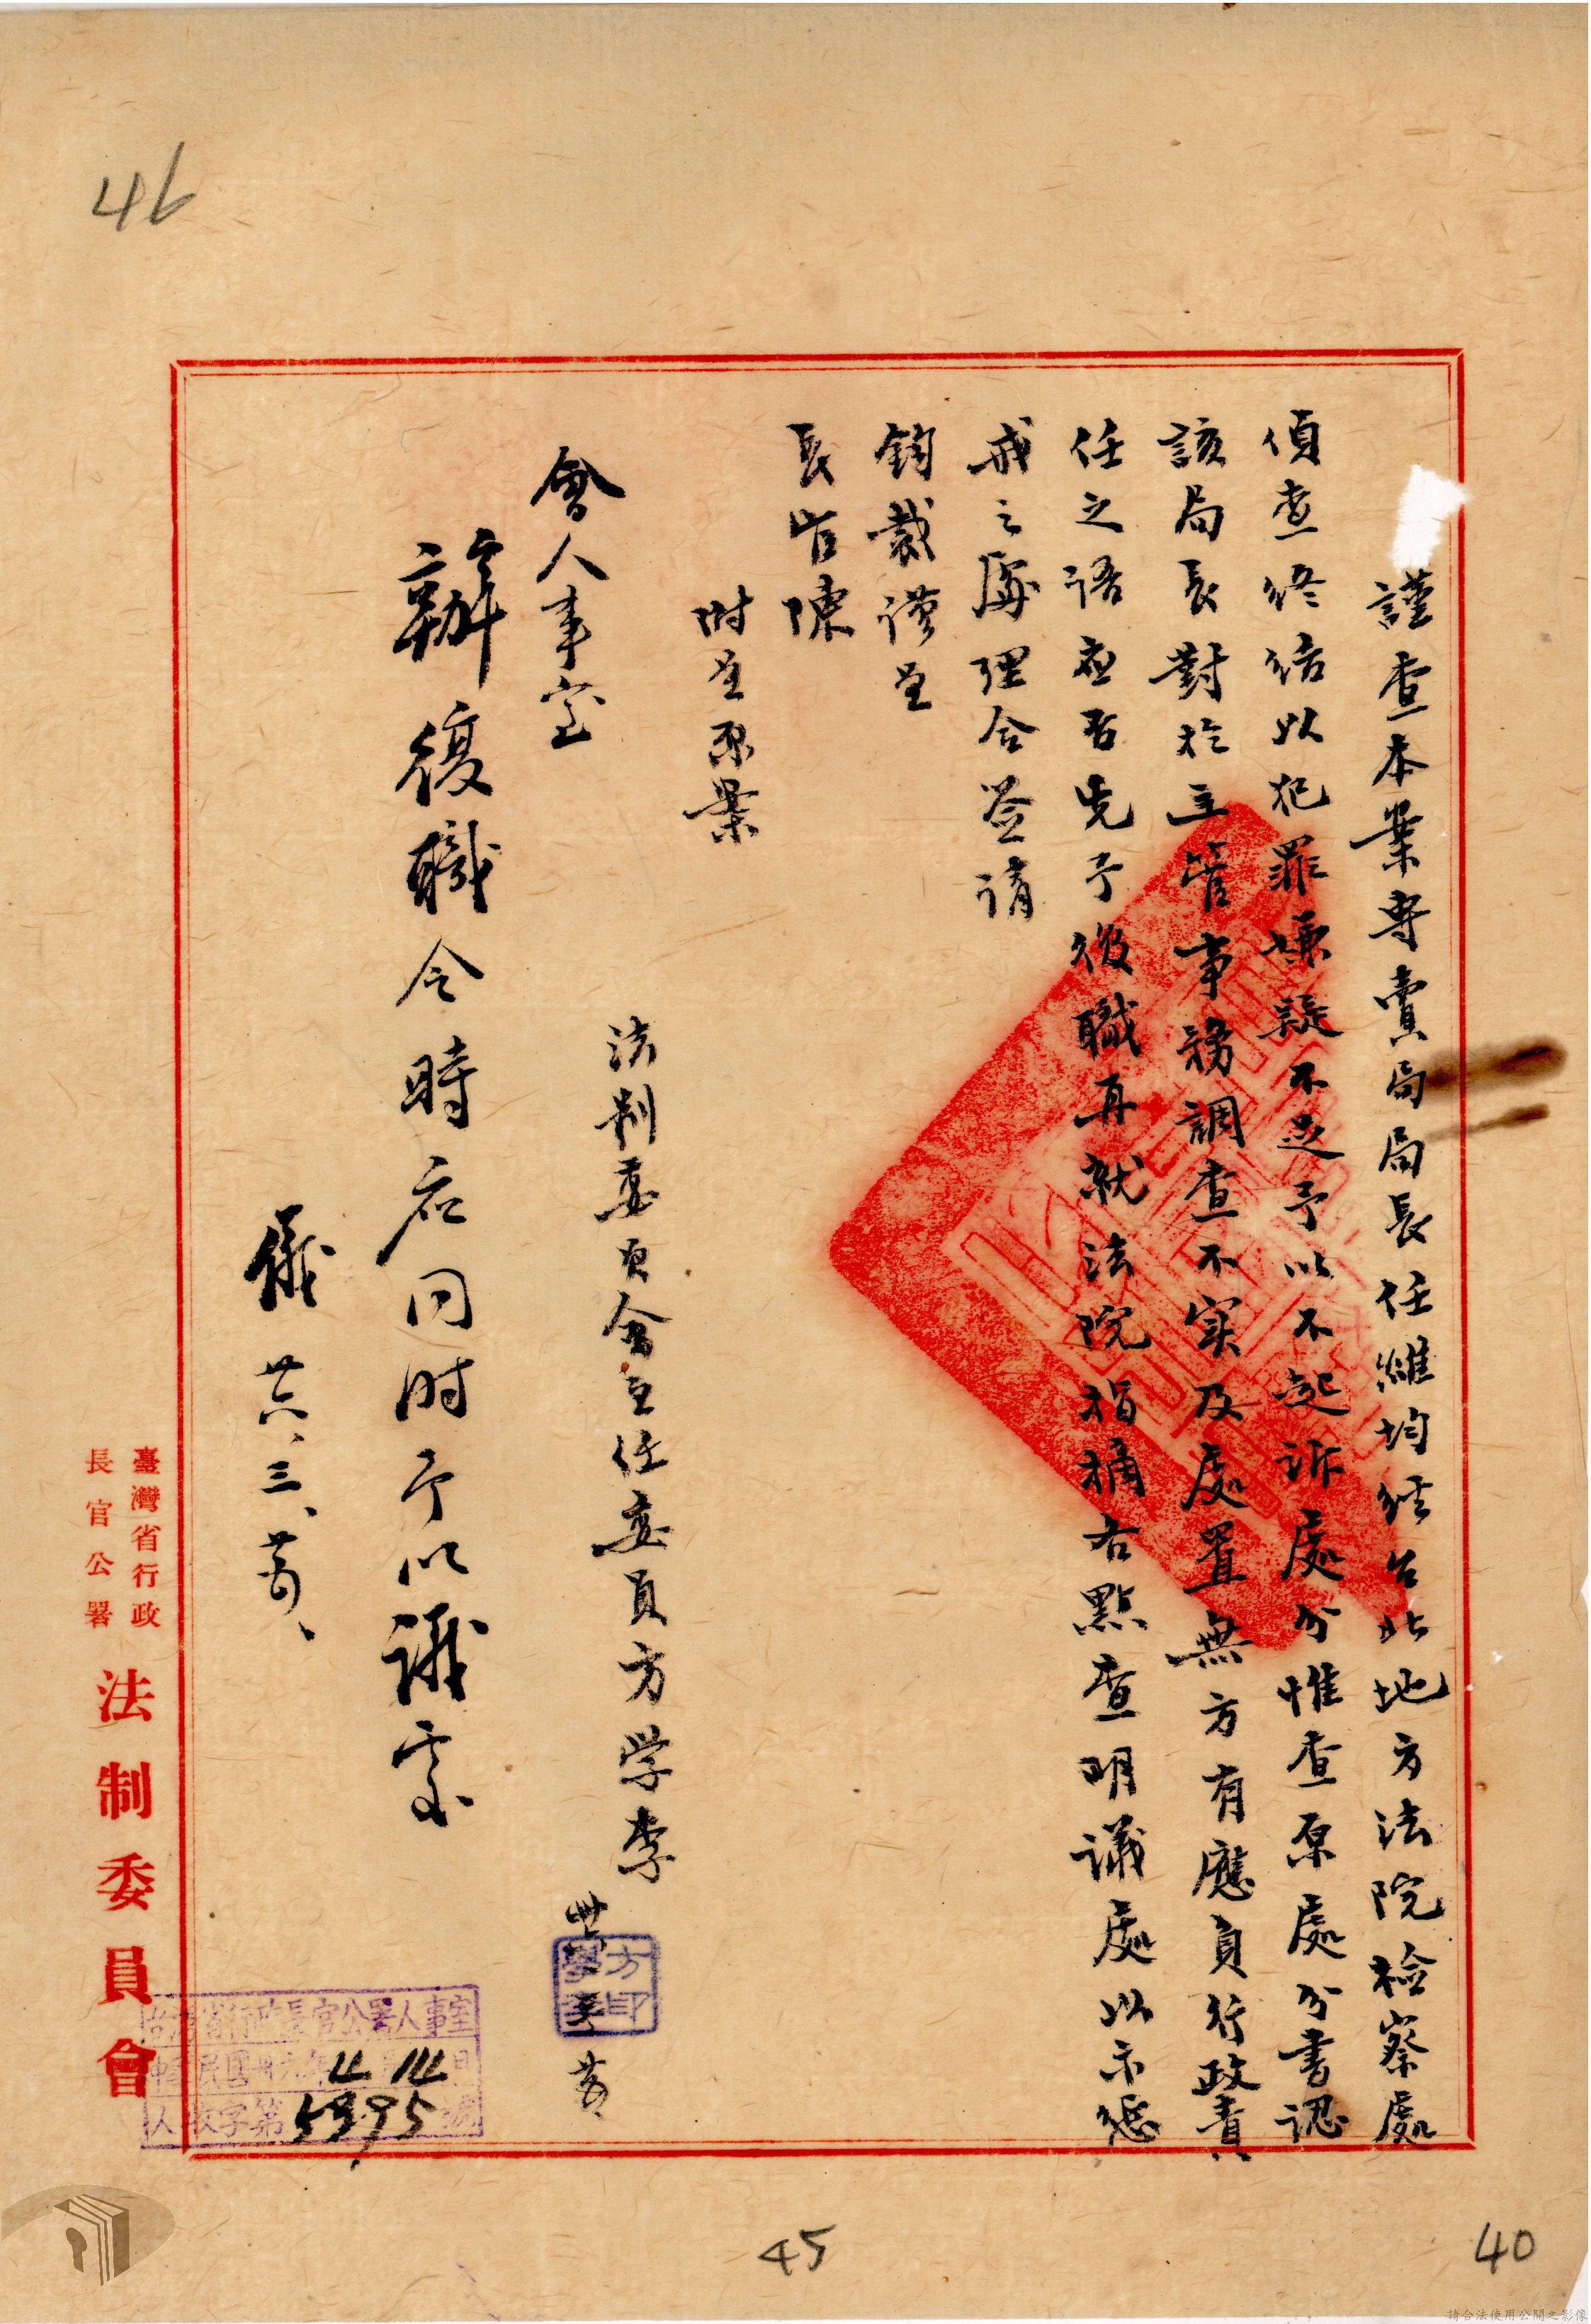 46
謹查本案專賣局局長任維均經台北地方法院檢察處
偵查終結以犯罪嫌疑不足予以不起訴處分惟查原處分書認
該局長對於主管事務調查不實及處置無方有應負行政責
任之語應否先予復職再就法院指摘各點查明議處以示懲
戒之處理合簽請
鈞裁謹呈
長官陳
附呈原案
法制委員會主任委員方学李
方學李印
會人事室
辦復職令時應同時予以議處
儀 卅六、三、
臺灣省行政
長官公署
法制委員會
台灣省行政長官公署人事室
中華民國卅六年4月14日
人收字第5395號
45
40
請合法使用公開之影像